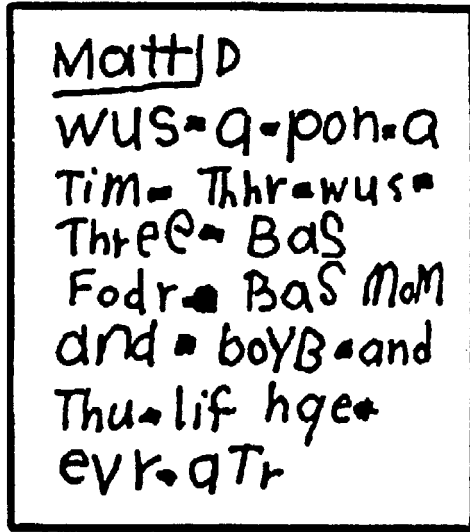 Matt D
wus-a-pon-a
Tim- Thhr-wus-
Three- BaS
Fodr- BaS MoM
and - boyB-and
Thu-lif hqe-
evr-aTr